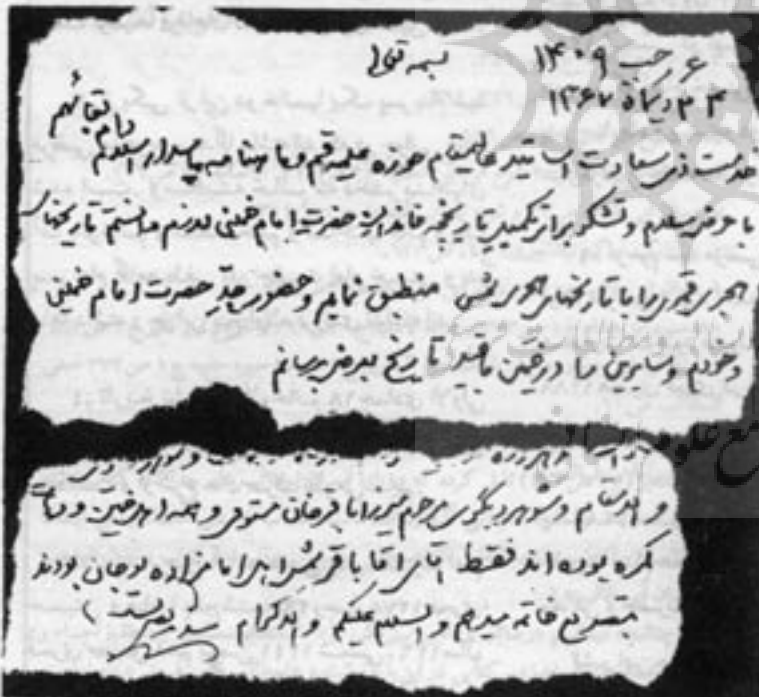 بسمه تعالی
۶ رجب ۱۴۰۹
۲۴ دیماه ۱۳۶۷
خدمت ذی سعادت اساتید عالیمقام حوزه علمیه قم و ماهنامه پاسدار اسلام دام بقائهم
با عرض سلام و تشکر برای تکمیل تاریخچه خاندان حضرت امام خمینی لازم دانستم تاریخهای
هجری قمری را با تاریخهای هجری شمسی منطبق نمایم و حضور جد حضرت امام خمینی
و خودم و سایرین را در خمین با قید تاریخ بعرض برسانم
و شوهر دیگری مرحوم میرزا باقرخان مستوفی و همه اهل خمین و
کمره بوده‌اند فقط آقای آقا باقر اهل امامزاده یوجان بودند
بتصدیع خاتمه میدهم والسلام علیکم و الاکرام